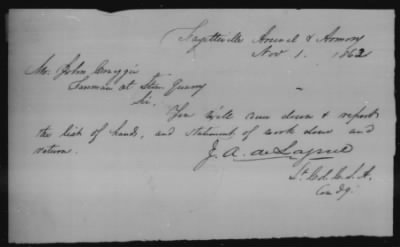 Fayetteville Arsenal & Armory
Nov 1. 1862
Mr. John Craggie
Foreman at Stone Quarry
Sir.
You will come down & report
the list of hands, and statement of work done and
return.
J. A. de Lagnel
Lt. Col. C. S. A.
Com dg.